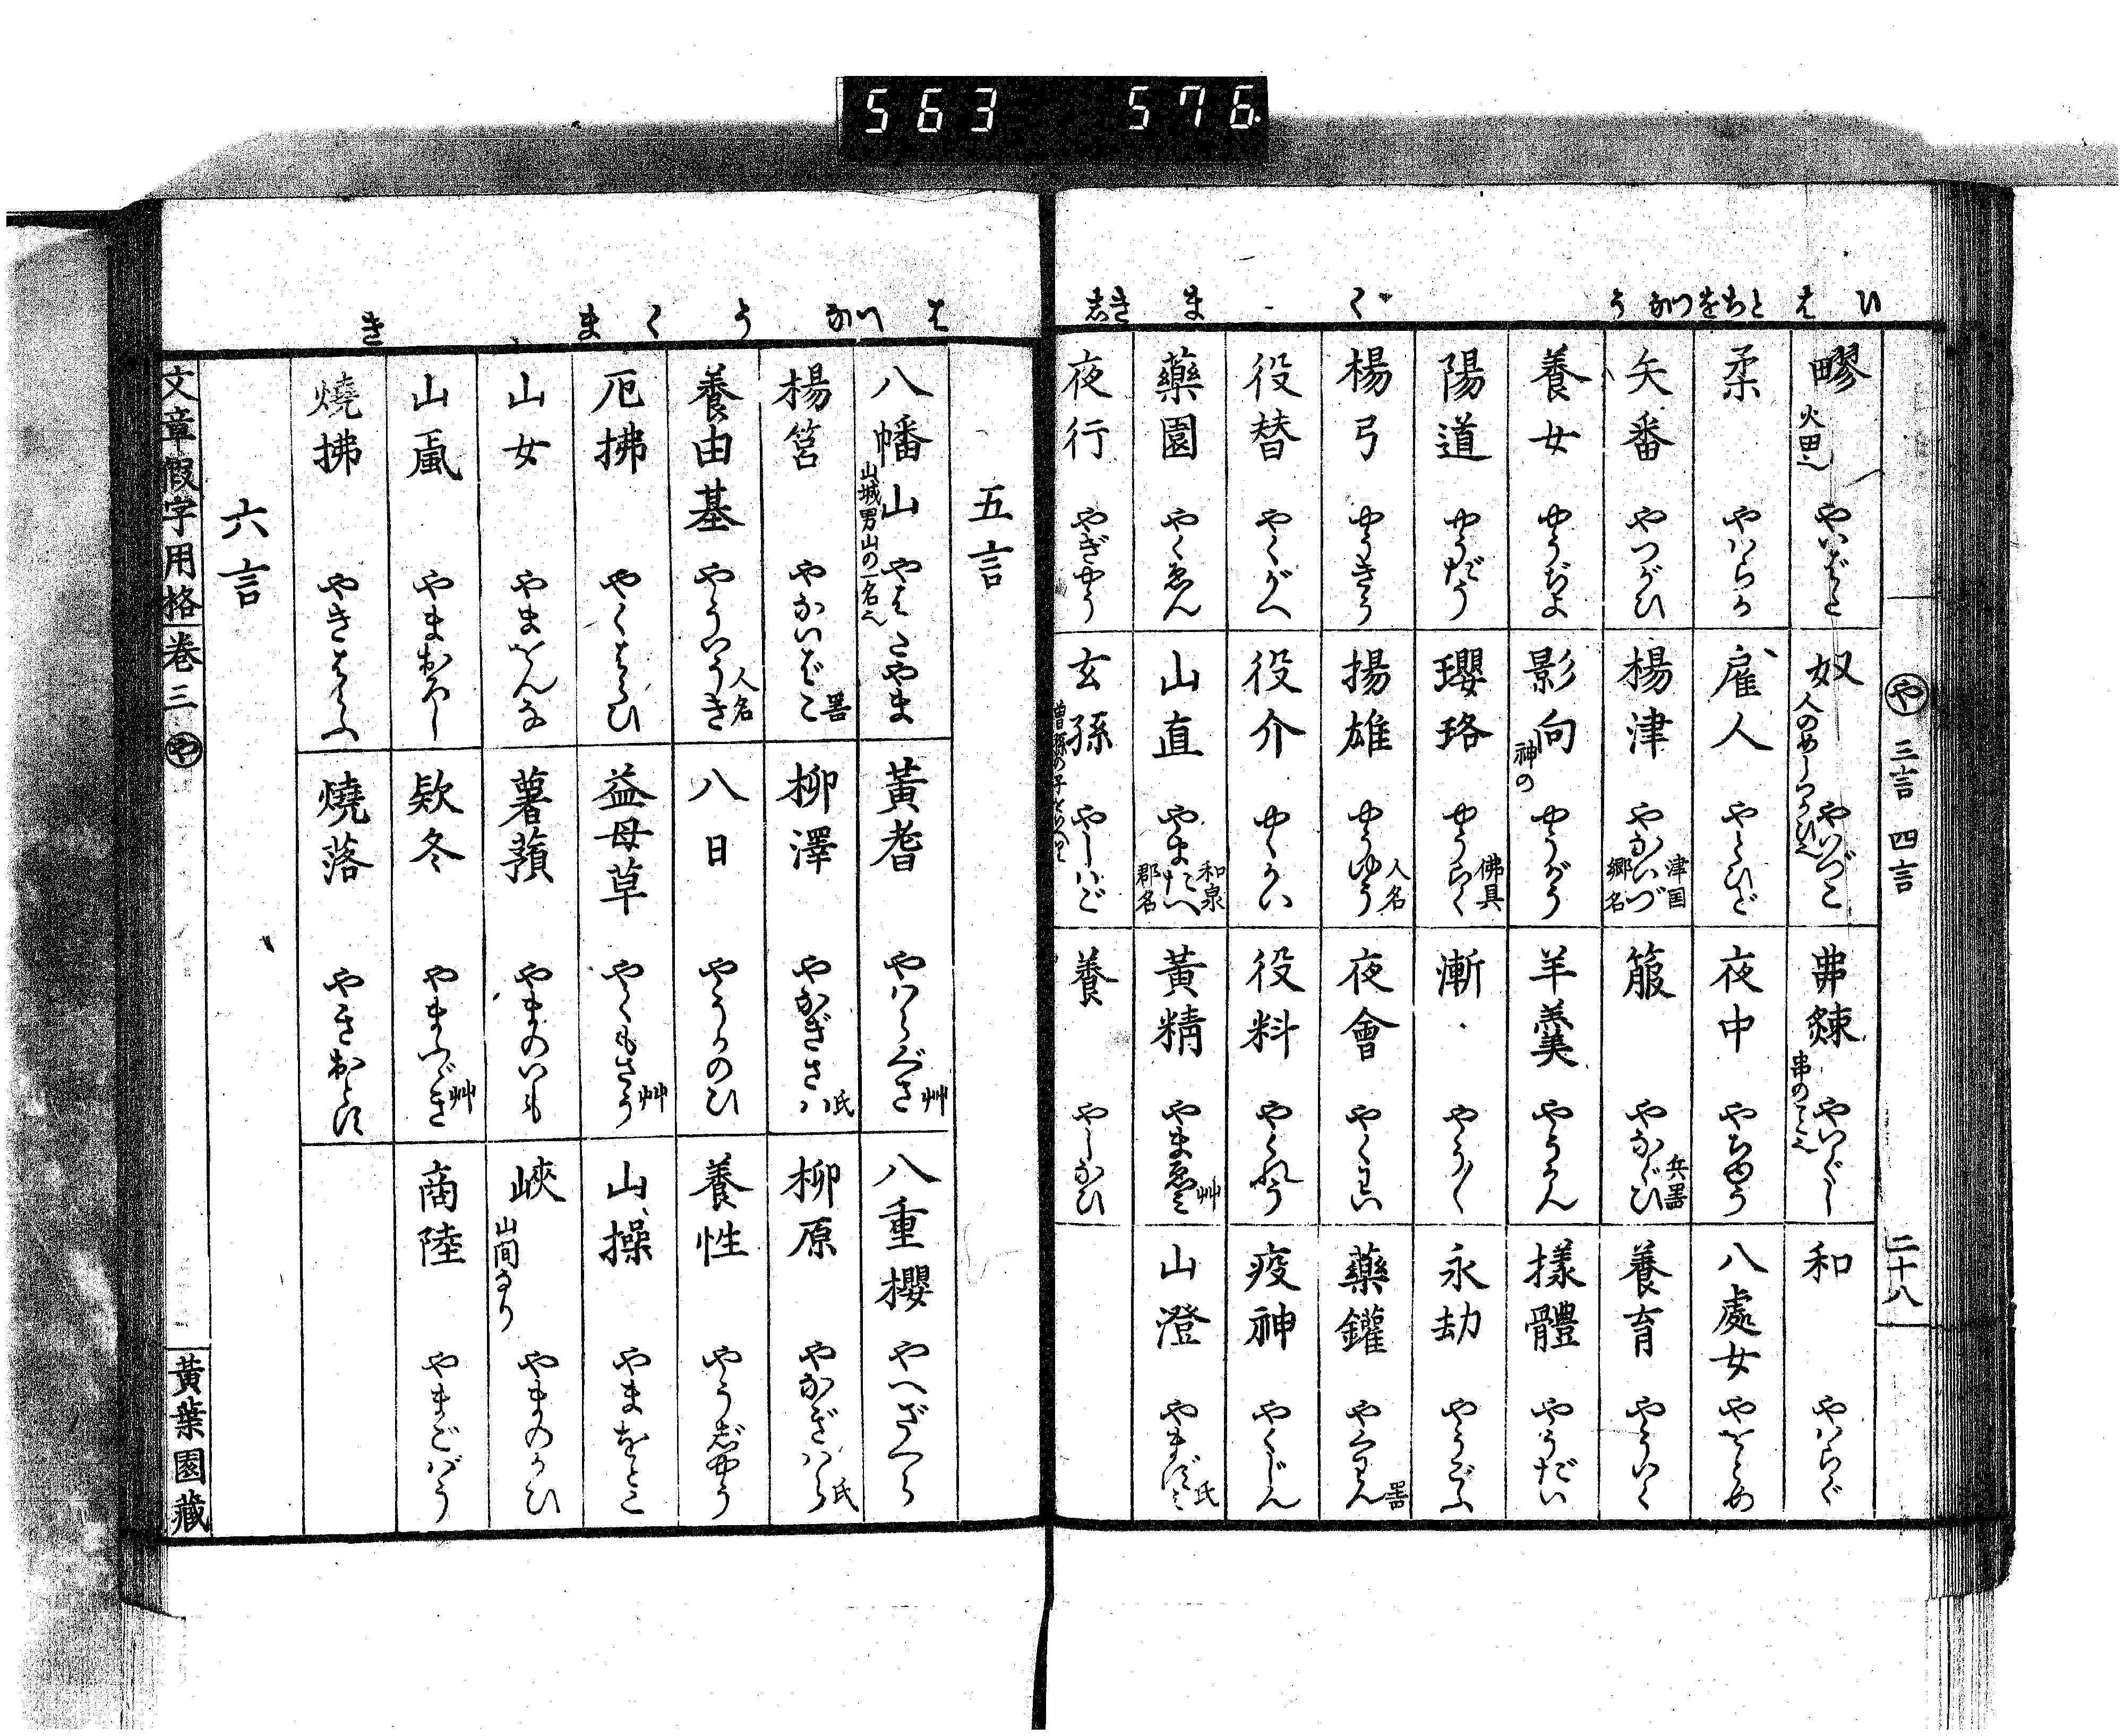 563 576
ひ は とちをつなう く ま きし
や 三言 四言 二十八
疁 火田也 やいばた
奴 人のめしつかひ也 やいづこ
弗鍊 串のこと也 やいぐし
和 やハらぐ
柔 やハらか
雇人 やとひど
夜中 やちゆう
八處女 やをとめ
矢番 やつがひ
楊津 やないづ 津国郷名
箙 やなぐひ 兵噐
養育 やういく
養女 やうぢよ
影向 神の やうがう
羊羹 やうかん
樣體 やうだい
陽道 やうだう
瓔珞 やうらく 佛具
漸 やう〱
永劫 やうごふ
楊弓 やうきう
揚雄 やうゆう 人名
夜會 やくわい
藥鑵 やくわん 噐
役替 やくがへ
役介 やくかい
役料 やくれう
疫神 やくじん
藥園 やくゑん
山直 やまたへ 和泉郡名
黃精 やまゑミ 艸
山澄 やまずミ 氏
夜行 やぎやう
玄孫 やしハご
養 やしなひ
は いな う く ま き
五言
八幡山 山城男山の一名也 やはたやま
黃耆 やハらぐさ 艸
八重櫻 やへざくら
楊筥 やないばこ 噐
柳澤 やなぎさハ 氏
柳原 やなぎハら 氏
養由基 やういうき 人名
八日 やうかのひ
養性 やうじやう
厄拂 やくはらひ
益母草 やくもさう 艸
山操 やまをとこ
山女 やまをんな
薯蕷 やまのいも
峽 山間なり やまのかひ
山颪 やまおろし
欵冬 やまぶき 艸
商陸 やまごばう
燒拂 やきはらふ
燒落 やきおとす
六言
文章假字用格 卷三 や 黃葉園藏